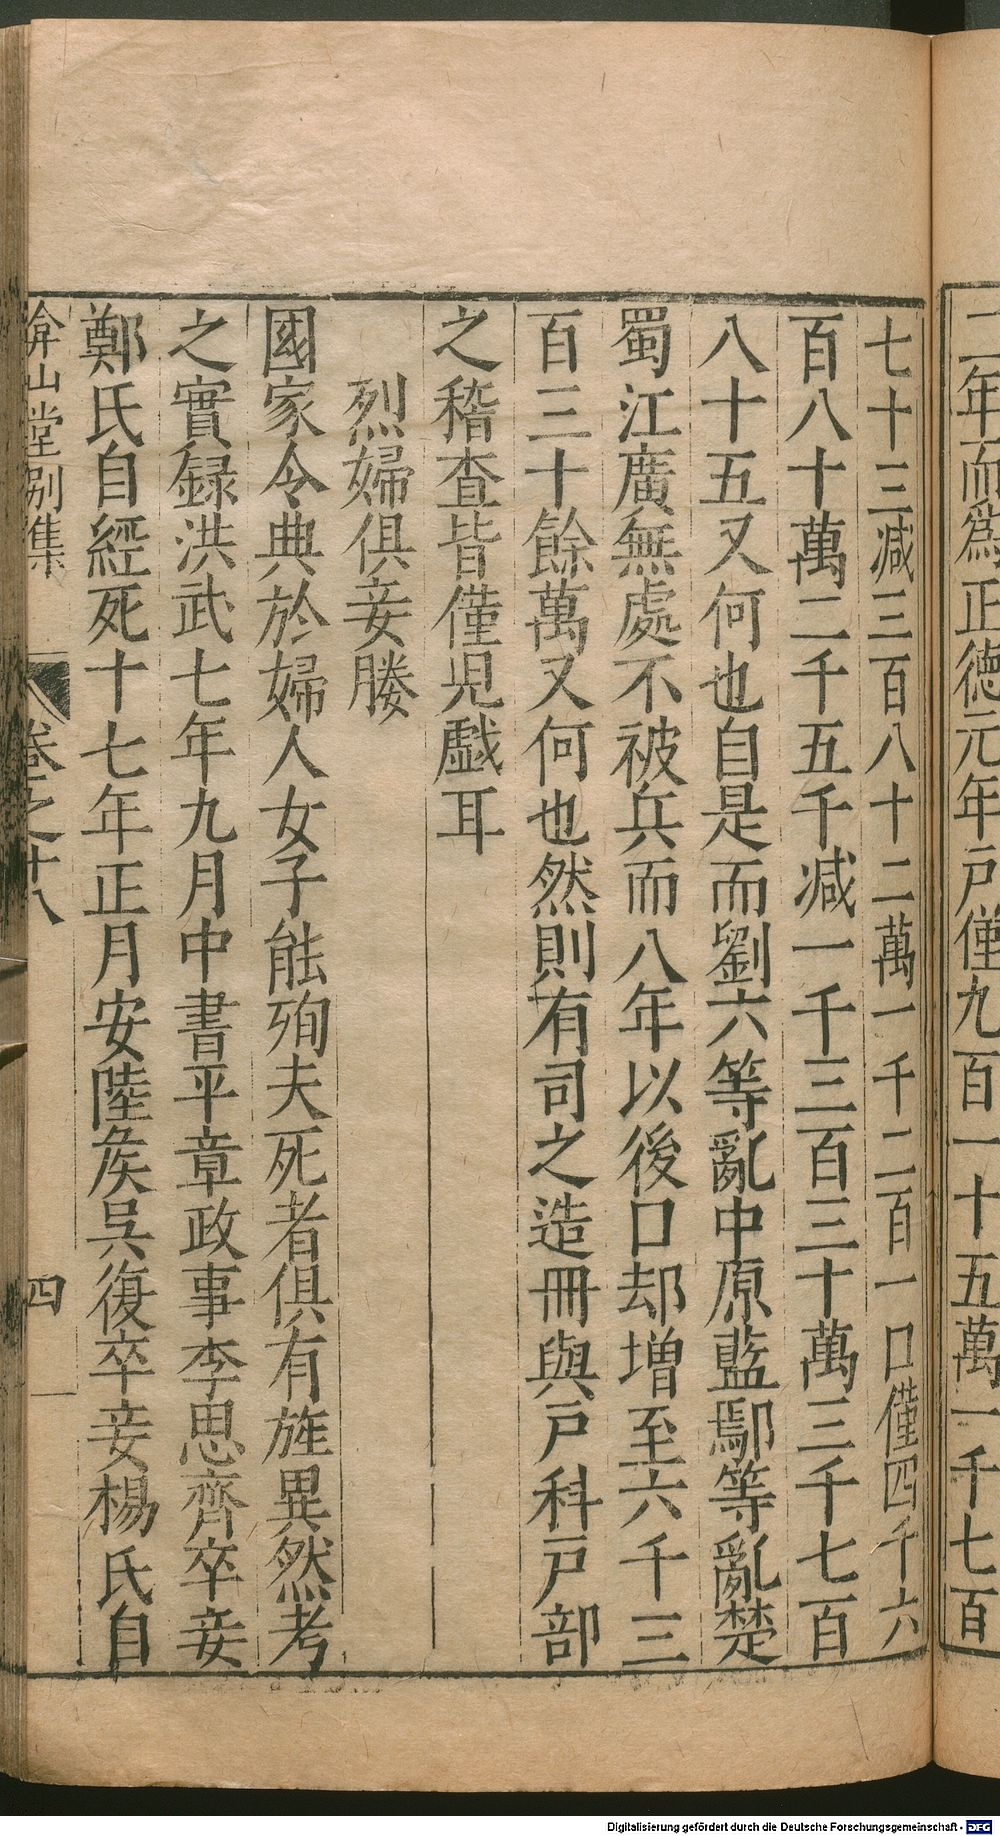 二年而爲正德元年戸僅九百一十五萬一千七百
七十三减三百八十二萬一千二百一口僅四千六
百八十萬二千五千减一千三百三十萬三千七百
八十五又何也自是而劉六等亂中原藍鄢等亂楚
蜀江廣無處不被兵而八年以後口却增至六千三
百三十餘萬又何也然則有司之造冊與戸科戸部
之稽查皆僅兒戯耳
烈婦俱妾媵
國家令典於婦人女子能殉夫死者俱有旌異然考
之實録洪武七年九月中書平章政事李思齊卒妾
鄭氏自經死十七年正月安陸矦吳復卒妾楊氏自
弇山堂別集
卷之十八
四
Digitalisierung gefördert durch die Deutsche Forschungsgemeinschaft - DFG